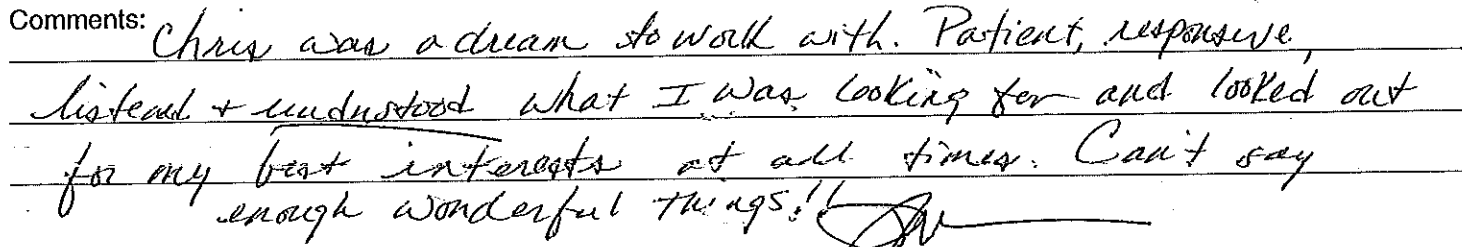 Comments: Chris was a dream to work with. Patient, responsive,
listend + understood what I was looking for and looked out
for my best interests at all times. Can't say
enough wonderful things!!